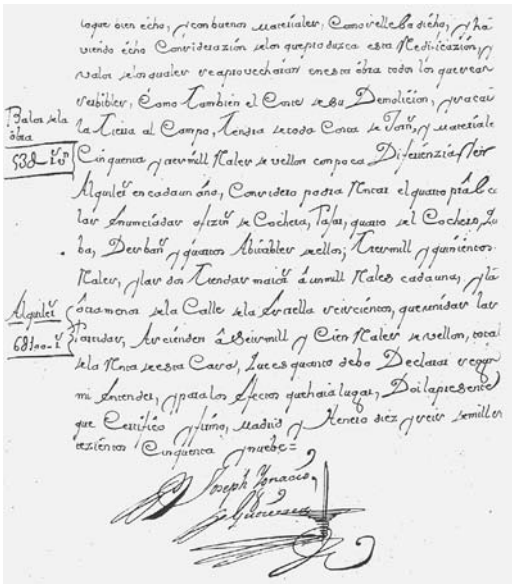 loque bien écho, y con buenos materiales, Como selleba dicho, y ha
viendo écho Considerazión delos queproduzca esta Redificazión, y
valor delosquales seaprovecharán enesta óbra todos los quesean
Como tambien el Coste desu Demolición, y sacar
Balor dela
óbra
la Tierra al Campo, Tendra detoda Costa de Jorñ, y materiale
538_
Cinquenta y tres mill Reales de vellon conpoca Diferenzia
Alquiler encadaun áno, Considero podra Rentar el quarto prâl
las Anunciadas ofizin de Cochera, Pajar, quarto del Cochero,
ba, Desban y quartos Abitables dellos; Tres mill y quinientos
Reales, y las dos Tiendas maior á un mill Reales cadauna, y la
Alquiler
ótra menor dela Calle dela Estrella seiscientos, que unidas las
6100
Partidas, Ascienden á Seis mill y Cien Reales de vellon, total
dela Renta deesta Casa, Quees quanto debo Declarar segun
mi Entender, y para los Efectos quehaia lugar, Doi lapresente
que Certifico y firmo, Madrid y Henero diez y seis demill se
tezientos Cinquenta y nuebe=
Joseph Ygnacio